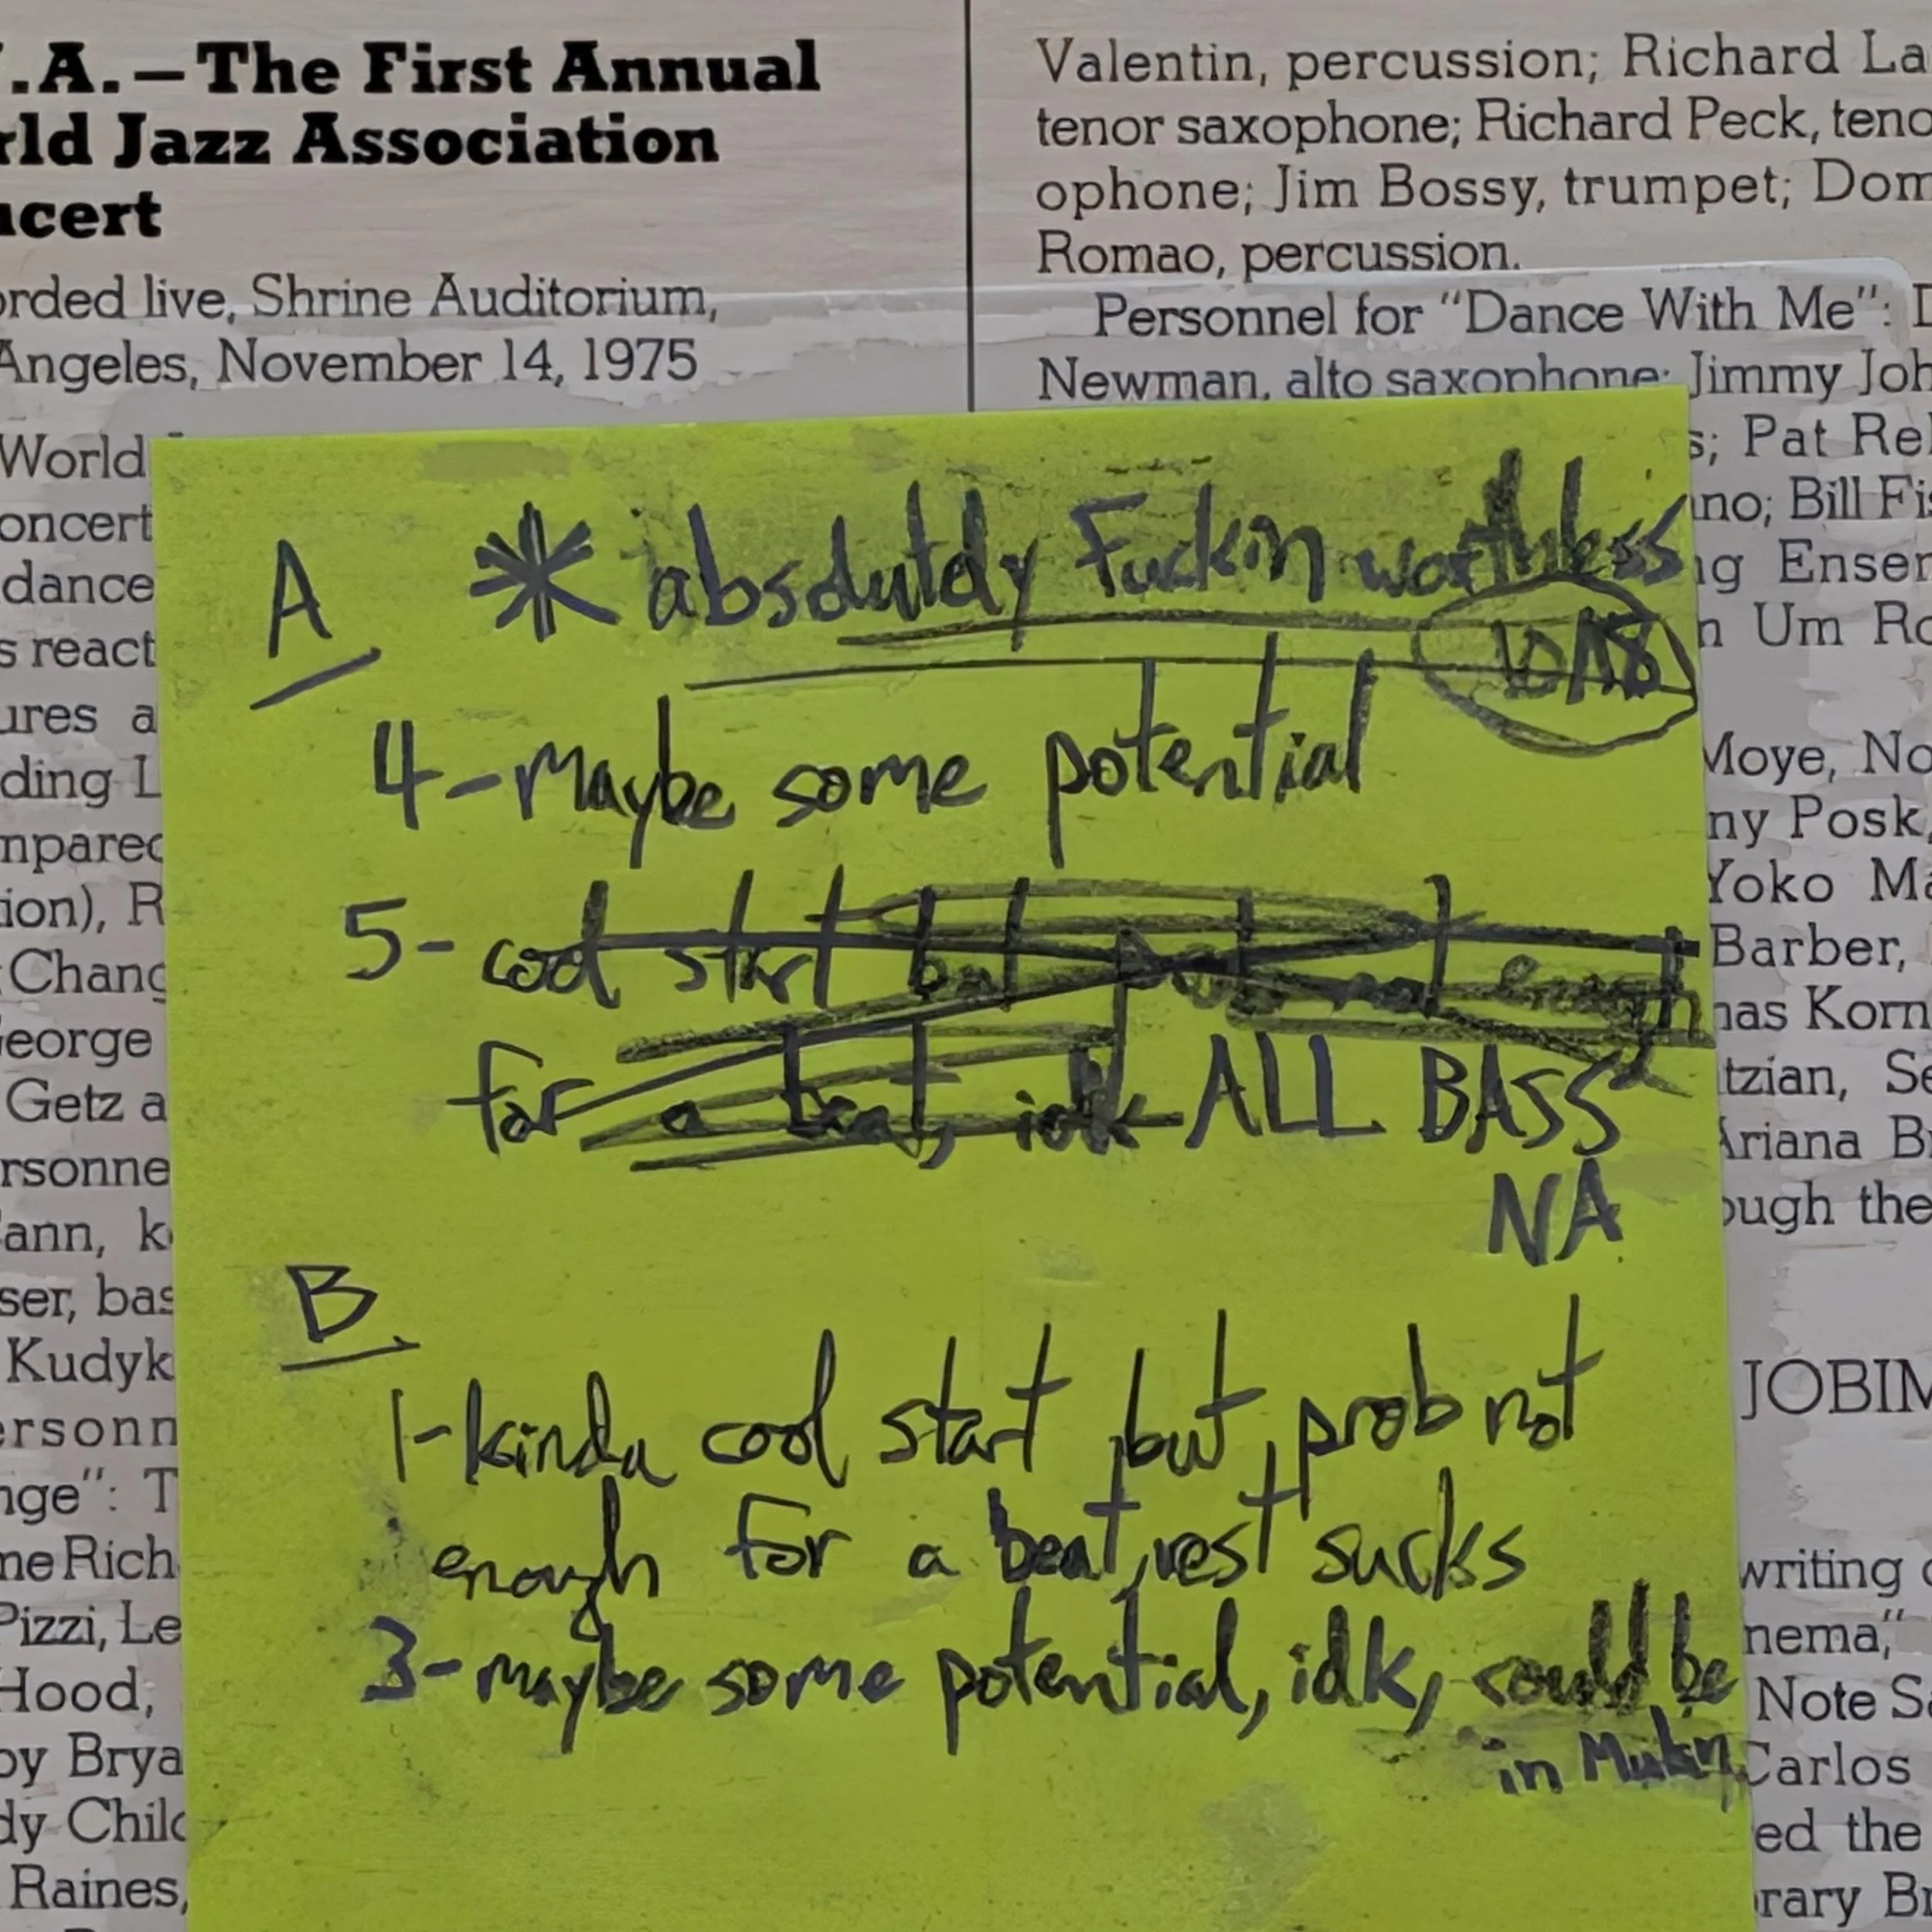 .A.—The First Annual
rld Jazz Association
cert
orded live, Shrine Auditorium,
Angeles, November 14, 1975
World
oncert
dance
s react
ures a
ding L
mpared
ion), R
Chang
George
Getz a
rsonne
ann, k
ser, bas
Kudyk
ersonn
nge": T
ne Rich
Pizzi, Le
Hood,
by Brya
dy Child
Raines,
Valentin, percussion; Richard La
tenor saxophone; Richard Peck, teno
ophone; Jim Bossy, trumpet; Dom
Romao, percussion.
Personnel for "Dance With Me": D
Newman, alto saxophone; Jimmy Joh
s; Pat Re
ano; Bill Fis
ng Ensem
n Um Ro
Moye, No
ny Posk,
Yoko Ma
Barber,
nas Korn
tzian, Se
Ariana Br
ough the
JOBIM
writing
nema,"
Note S
Carlos
ed the
rary Br
A * absolutely Fuckin worthless
4-Maybe some potential
5- cool start but enough
for a beat, idk ALL BASS
NA
B
1-kinda cool start, but, prob not
enough for a beat, rest sucks
3-maybe some potential, idk, could be
in